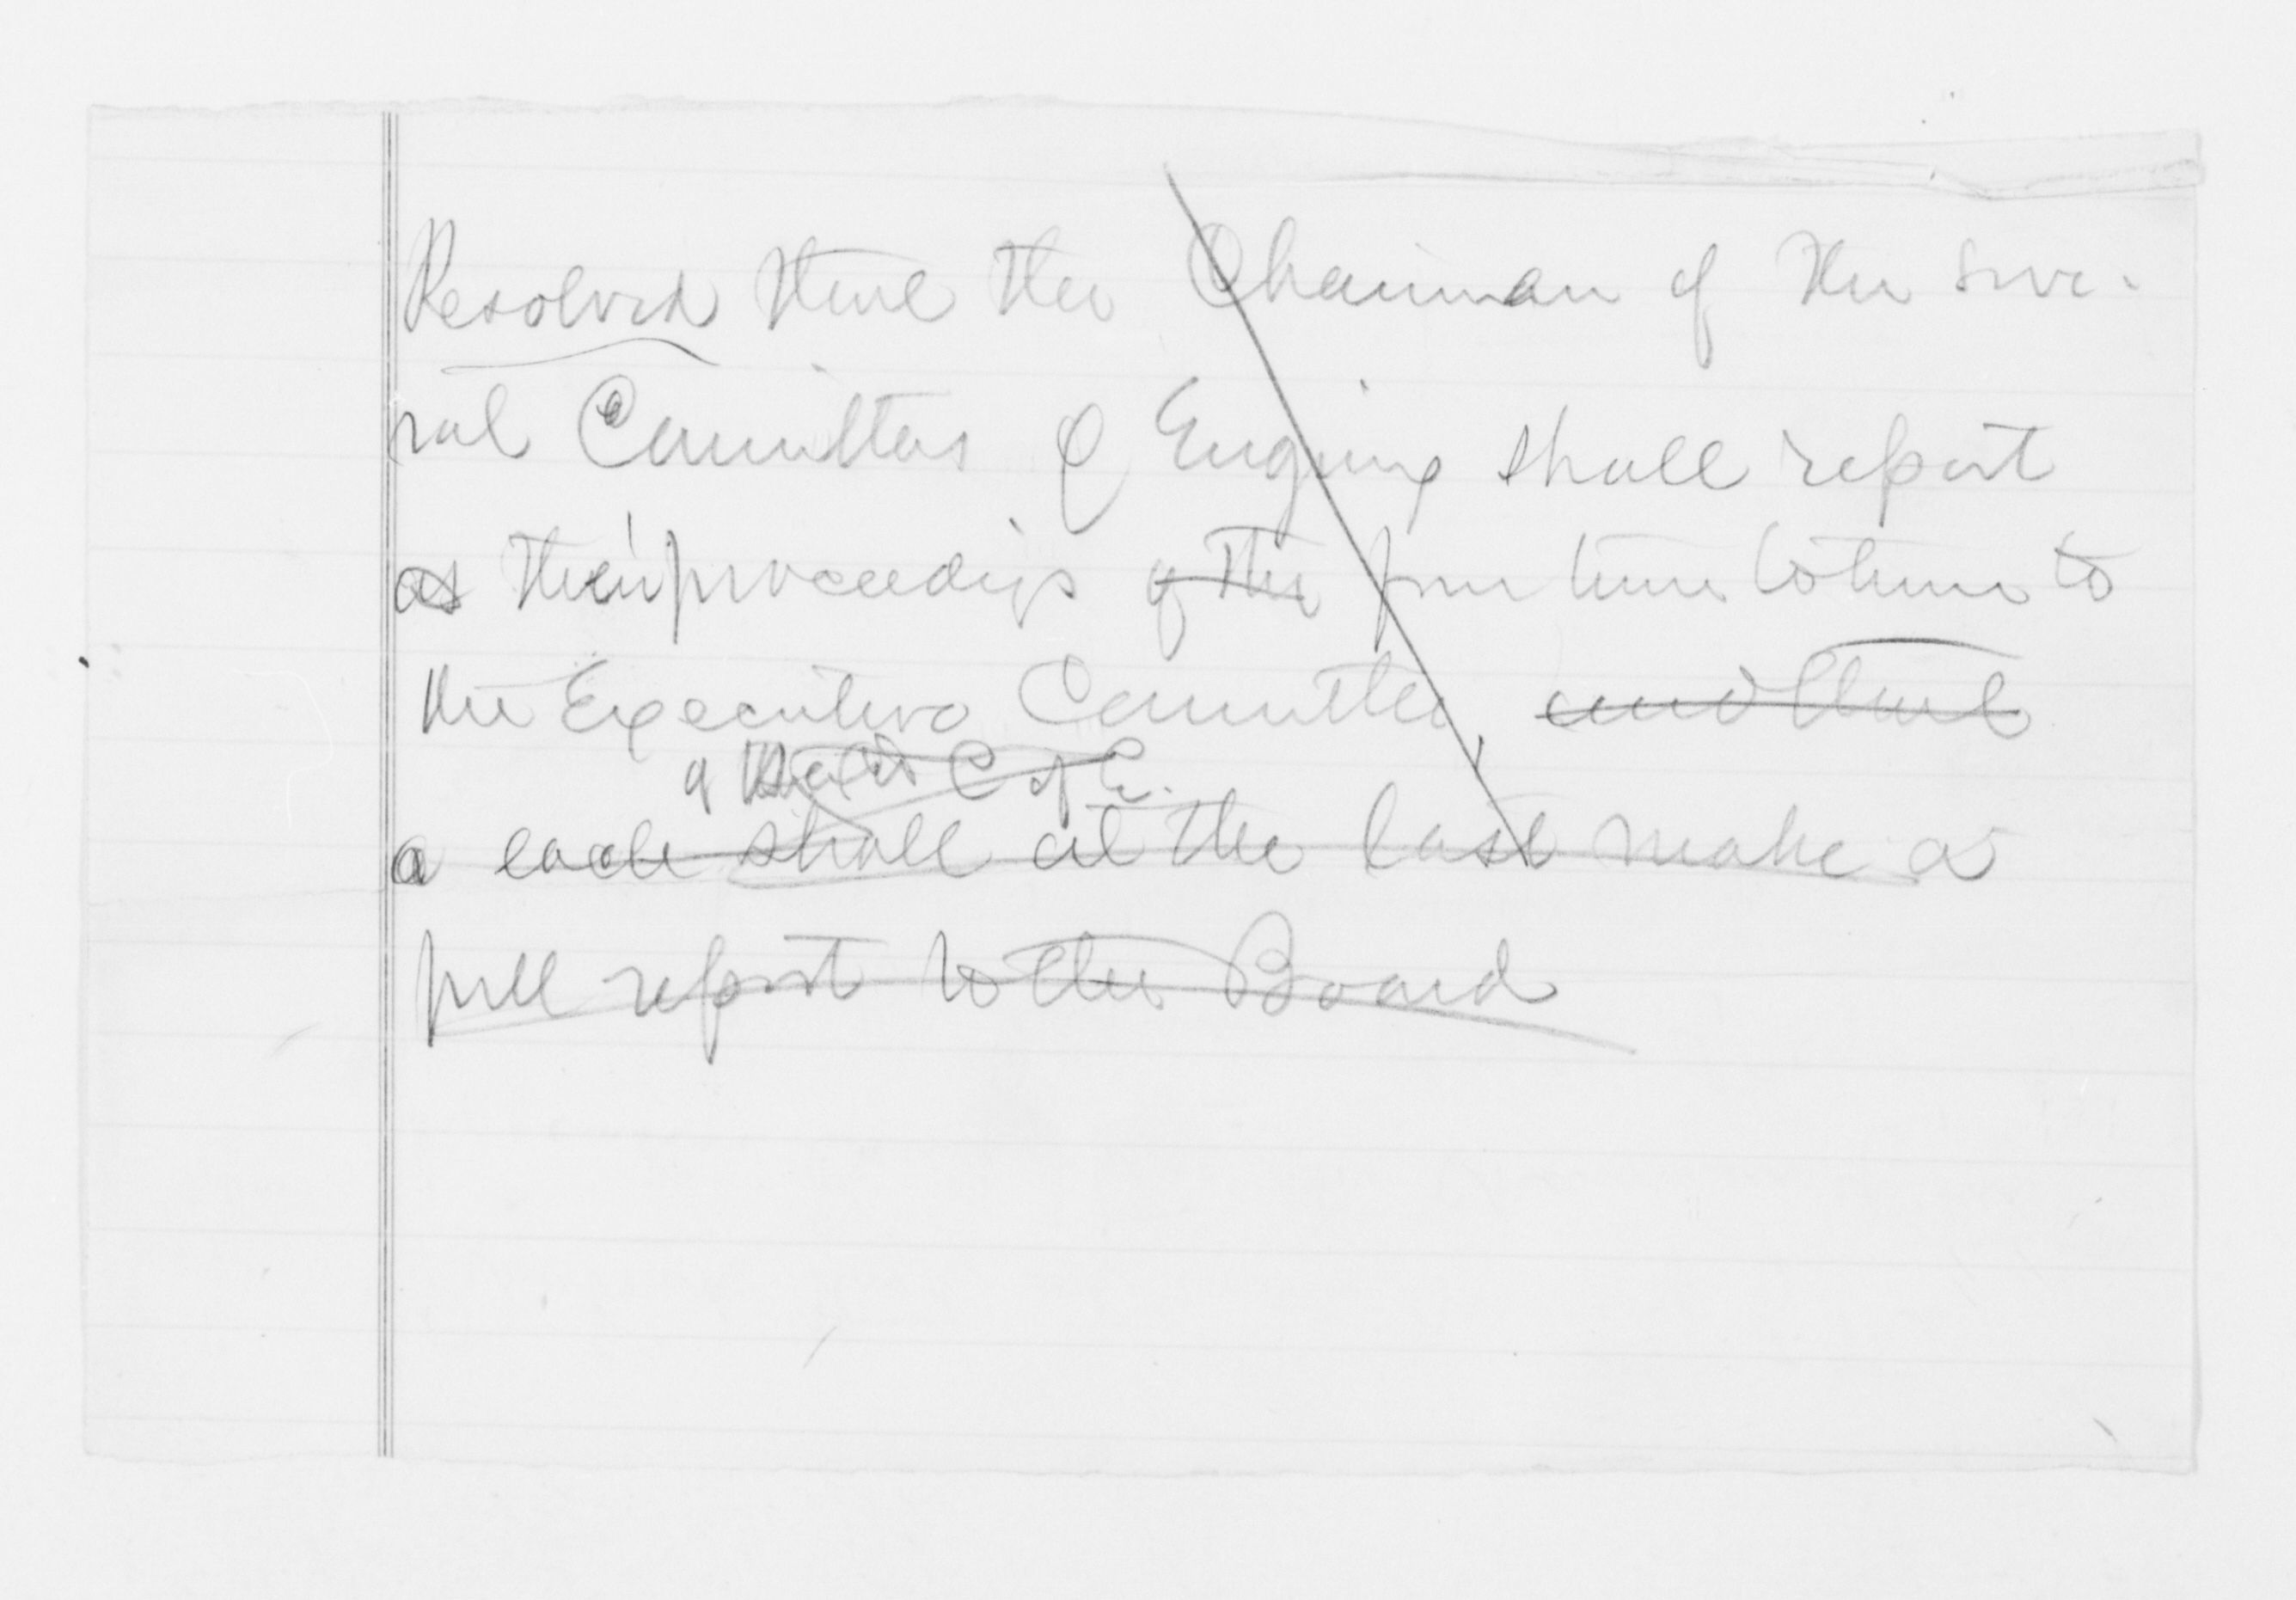 Resolved that the Chairman of the seve-
ral Committees of Enquiry shall report
as their proceedings of the from time to time to
the Executive Committee, and that
of C of E.
a each shall at the last make a
full report to the Board